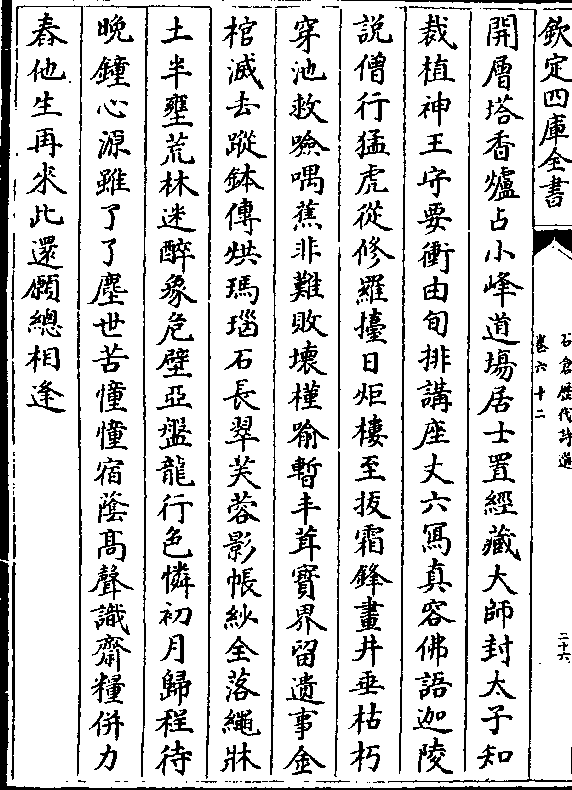 欽定四庫全書
石倉歷代詩選
卷六十二
二十六
開層塔香爐占小峰道場居士置經藏大師封太子知
栽植神王守要衝由旬排講座丈六寫真容佛語迦陵
說僧行猛虎從修羅擡日炬樓至拔霜鋒畫井垂枯朽
穿池救噞喁蕉非難敗壞槿喻暫丰茸寳界留遺事金
棺滅去蹤鉢傳烘瑪瑙石長翠芙蓉影帳紗全落繩牀
土半壅荒林迷醉象危壁亞盤龍行色憐初月歸程待
晚鐘心源雖了了塵世苦憧憧宿蔭髙聲識齋糧併力
舂他生再來此還願總相逢